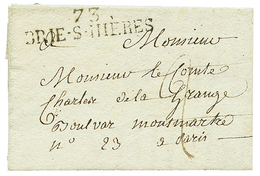 73
BRIE-S-HIÈRES
Monsieur
Monsieur le Comte
Charles de la Grange
Boulvar montmartre
n° 23 a Paris